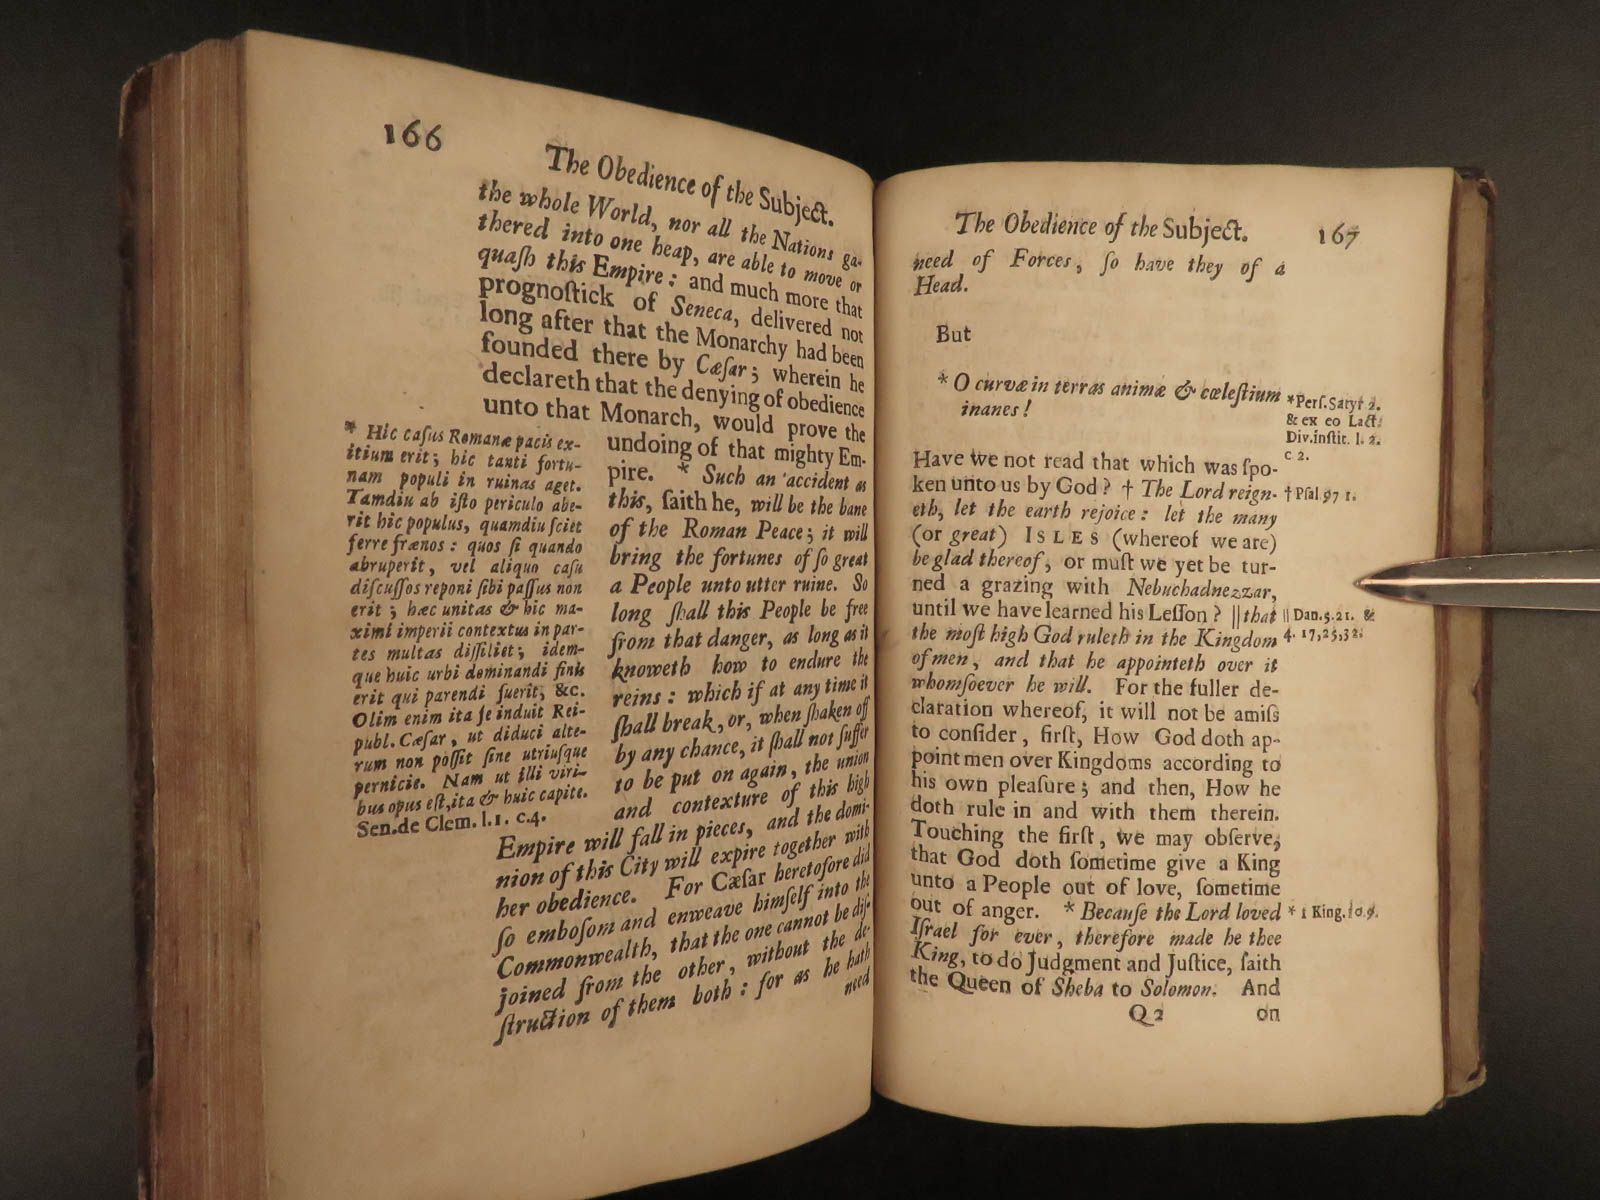 166
The Obedience of the Subject.
the whole World, nor all the Nations ga-
thered into one heap, are able to move or
quaſh this Empire: and much more that
prognoſtick of Seneca, delivered not
long after that the Monarchy had been
founded there by Cæſar; wherein he
declareth that the denying of obedience
unto that Monarch, would prove the
undoing of that mighty Em-
pire. * Such an accident as
this, ſaith he, will be the bane
of the Roman Peace; it will
bring the fortunes of ſo great
a People unto utter ruine. So
long ſhall this People be free
from that danger, as long as it
knoweth how to endure the
reins: which if at any time it
ſhall break, or, when ſhaken off
by any chance, it ſhall not ſuffer
to be put on again, the union
and contexture of this high
Empire will fall in pieces, and the domi-
nion of this City will expire together with
her obedience. For Cæſar heretofore did
ſo emboſom and enweave himſelf into the
Commonwealth, that the one cannot be diſ-
joined from the other, without the de-
ſtruction of them both: for as he hath
need
* Hic caſus Romanæ pacis ex-
itium erit; hic tanti fortu-
nam populi in ruinas aget.
Tamdiu ab iſto periculo abe-
rit hic populus, quamdiu ſciet
ferre frænos: quos ſi quando
abruperit, vel aliquo caſu
diſcuſſos reponi ſibi paſſus non
erit; hæc unitas & hic ma-
ximi imperii contextus in par-
tes multas diſſiliet; idem-
que huic urbi dominandi finis
erit qui parendi fuerit, &c.
Olim enim ita ſe induit Rei-
publ. Cæſar, ut diduci alte-
rum non poſſit ſine utriuſque
pernicie. Nam ut illi viri-
bus opus eſt, ita & huic capite.
Sen. de Clem. l. 1. c. 4.
The Obedience of the Subject. 167
need of Forces, ſo have they of a
Head.
But
* O curvæ in terras animæ & cœleſtium
inanes!
Have we not read that which was ſpo-
ken unto us by God? † The Lord reign-
eth, let the earth rejoice: let the many
(or great) ISLES (whereof we are)
be glad thereof, or muſt we yet be tur-
ned a grazing with Nebuchadnezzar,
until we have learned his Leſſon? || that
the moſt high God ruleth in the Kingdom
of men, and that he appointeth over it
whomſoever he will. For the fuller de-
claration whereof, it will not be amiſs
to conſider, firſt, How God doth ap-
point men over Kingdoms according to
his own pleaſure; and then, How he
doth rule in and with them therein.
Touching the firſt, we may obſerve,
that God doth ſometime give a King
unto a People out of love, ſometime
out of anger. * Becauſe the Lord loved
Iſrael for ever, therefore made he thee
King, to do Judgment and Juſtice, ſaith
the Queen of Sheba to Solomon. And
Q 2 on
* Perſ. Satyr 2.
& ex eo Lact.
Div. inſtit. l. 2.
c 2.
† Pſal 97 1.
|| Dan. 5. 21. &
4. 17, 25, 32.
* 1 King. 10. 9.